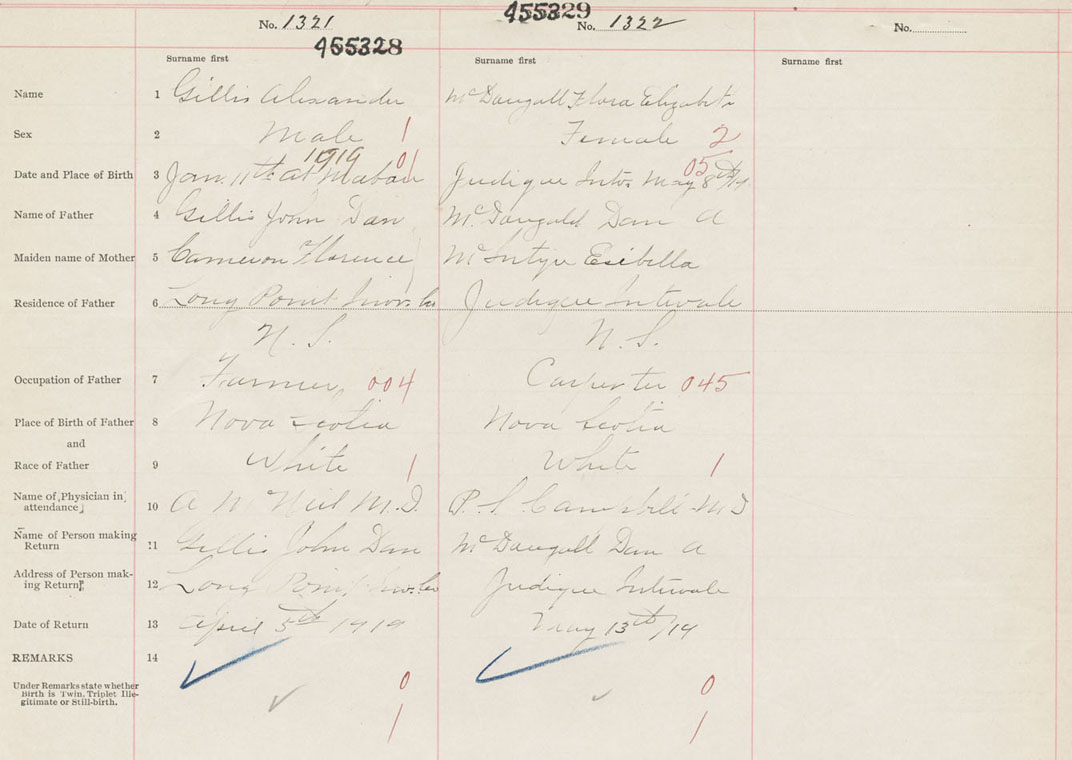 No. 1321
455328
455329
No. 1322
No.
Surname first
Surname first
Surname first
Name 1 Gillis Alexander McDougall Flora Elizabeth
Sex 2 Male 1 Female 2
1919 01 05
Date and Place of Birth 3 Jan. 11th at Mabou Judique Intv. May 8th/19
Name of Father 4 Gillis John Dan McDougald Dan A
Maiden name of Mother 5 Cameron Florence McIntyre Esibella
Residence of Father 6 Long Point Inv. Co Judique Intervale
N. S. N. S.
Occupation of Father 7 Farmer, 004 Carpenter 045
Place of Birth of Father 8 Nova Scotia Nova Scotia
and
Race of Father 9 White 1 White 1
Name of Physician in
attendance 10 A McNeil M.D. P. S. Campbell M D
Name of Person making
Return 11 Gillis John Dan McDougall Dan A
Address of Person mak-
ing Return 12 Long Point Inv. Co Judique Intervale
Date of Return 13 April 5th 1919 May 13th/19
REMARKS 14
Under Remarks state whether
Birth is Twin, Triplet Ille-
gitimate or Still-birth.
0 0
1 1